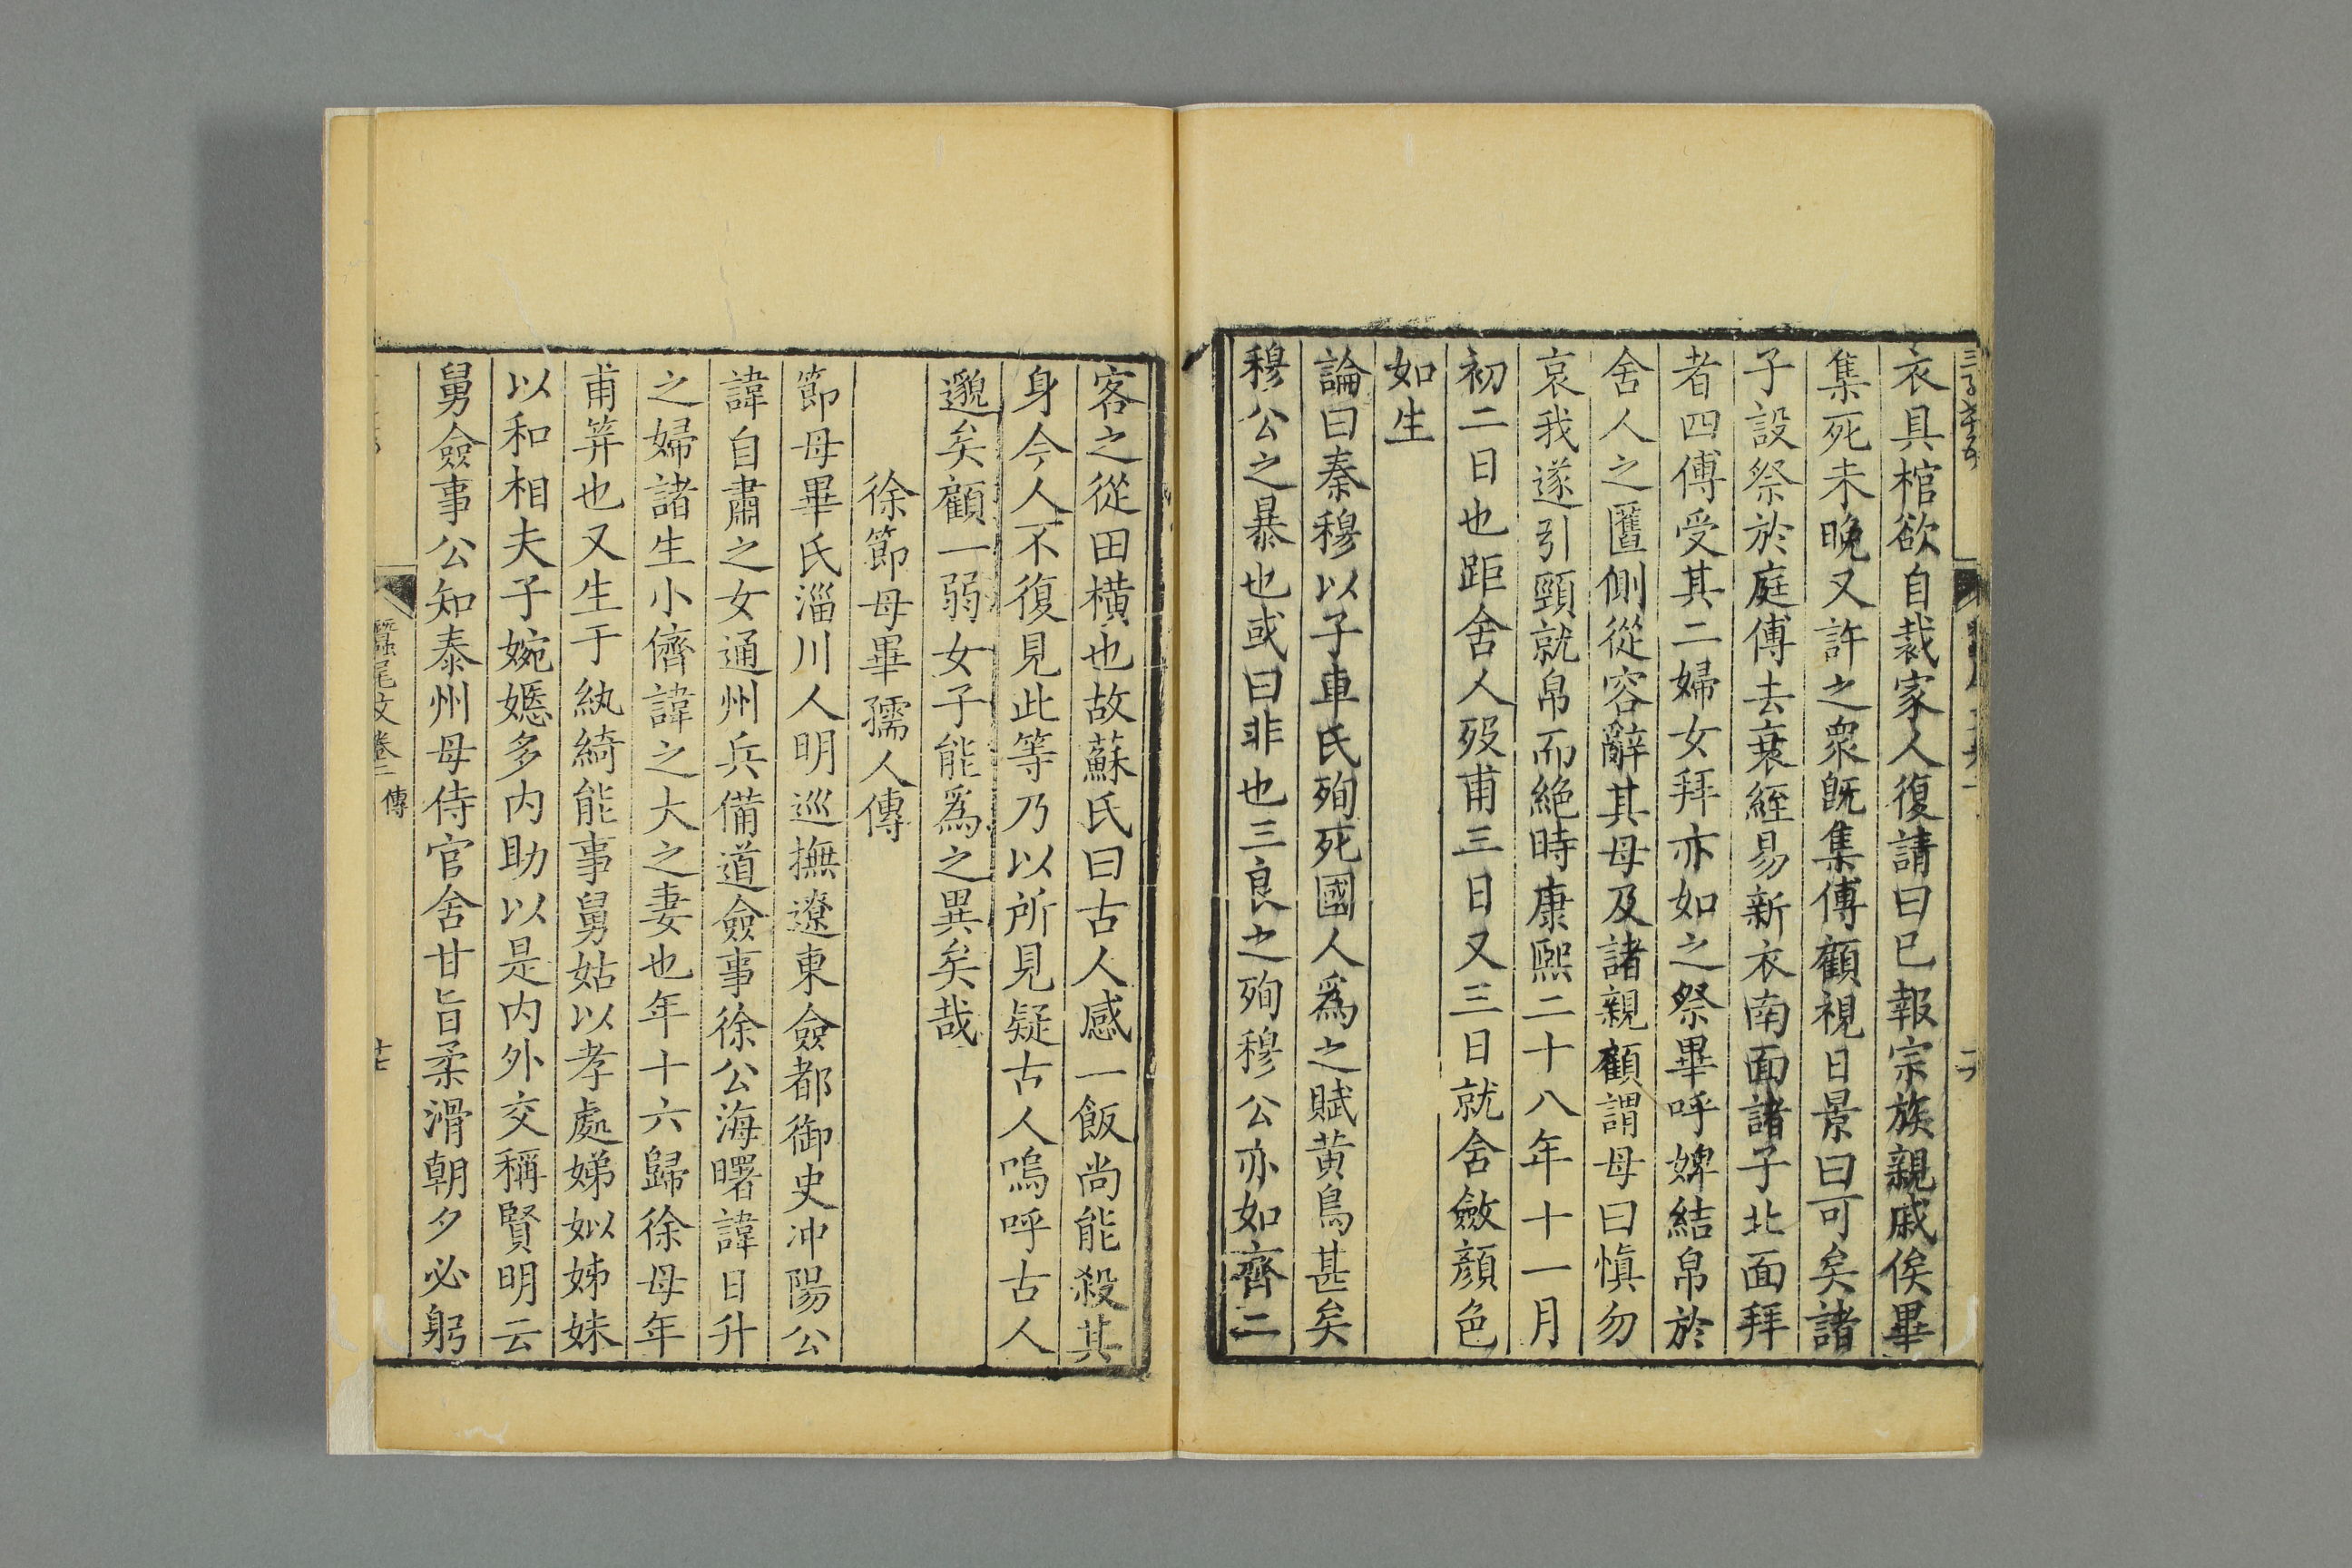 衣具棺欲自裁家人復請曰已報宗族親戚俟畢
集死未晚又許之衆旣集傅顧視日景曰可矣諸
子設祭於庭傅去衰絰易新衣南面諸子北面拜
者四傅受其二婦女拜亦如之祭畢呼婢結帛於
舍人之匶側從容辭其母及諸親顧謂母曰愼勿
哀我遂引頸就帛而絶時康熙二十八年十一月
初二日也距舍人歿甫三日又三日就舍斂顏色
如生
論曰秦穆以子車氏殉死國人爲之賦黄鳥甚矣
穆公之暴也或曰非也三良之殉穆公亦如齊二
客之從田橫也故蘇氏曰古人感一飯尚能殺其
身今人不復見此等乃以所見疑古人嗚呼古人
邈矣顧一弱女子能爲之異矣哉
徐節母畢孺人傳
節母畢氏淄川人明巡撫遼東僉都御史冲陽公
諱自肅之女通州兵備道僉事徐公海曙諱日升
之婦諸生小儕諱之大之妻也年十六歸徐母年
甫笄也又生于紈綺能事舅姑以孝處娣姒姊妹
以和相夫子婉嫕多内助以是内外交稱賢明云
舅僉事公知泰州母侍官舍甘旨柔滑朝夕必躬
蠶尾文卷二 傳